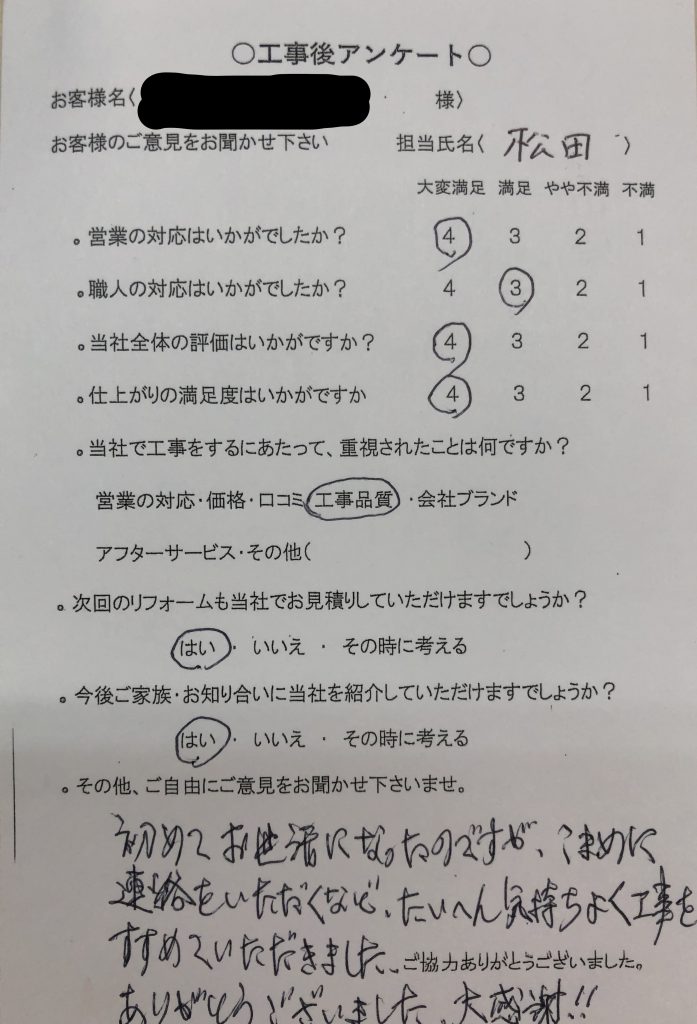 ○工事後アンケート○
お客様名〈 様〉
お客様のご意見をお聞かせ下さい 担当氏名〈 松田 〉
大変満足 満足 やや不満 不満
。営業の対応はいかがでしたか？ 4 3 2 1
。職人の対応はいかがでしたか？ 4 3 2 1
。当社全体の評価はいかがですか？ 4 3 2 1
。仕上がりの満足度はいかがですか 4 3 2 1
。当社で工事をするにあたって、重視されたことは何ですか？
営業の対応・価格・口コミ 工事品質 ・会社ブランド
アフターサービス・その他（ ）
。次回のリフォームも当社でお見積りしていただけますでしょうか？
はい ・ いいえ ・ その時に考える
。今後ご家族・お知り合いに当社を紹介していただけますでしょうか？
はい ・ いいえ ・ その時に考える
。その他、ご自由にご意見をお聞かせ下さいませ。
初めてお世話になったのですが、こまめに
連絡をいただくなど、たいへん気持ちよく工事を
すすめていただきました。ご協力ありがとうございました。
ありがとうございました。大感謝!!